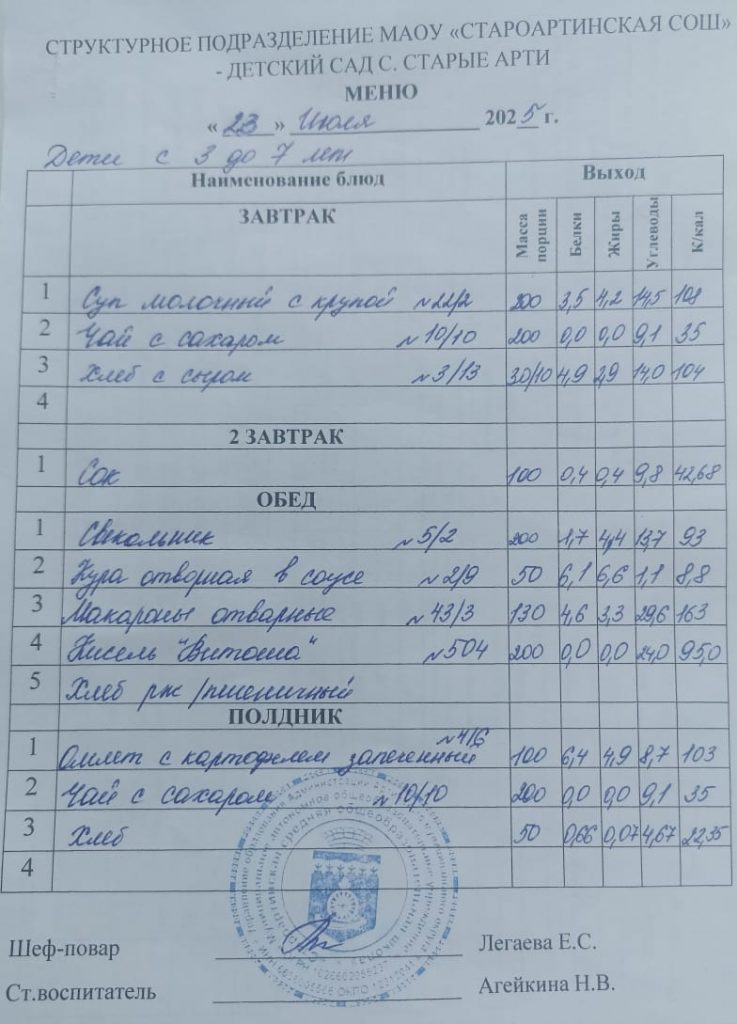 СТРУКТУРНОЕ ПОДРАЗДЕЛЕНИЕ МАОУ «СТАРОАРТИНСКАЯ СОШ»
- ДЕТСКИЙ САД С. СТАРЫЕ АРТИ
МЕНЮ
« 23 » Июля 2025 г.
Дети с 3 до 7 лет
Наименование блюд Выход
ЗАВТРАК Масса порции Белки Жиры Углеводы К/кал
1 Суп молочный с крупой №22/2 200 3,5 4,2 14,5 108
2 Чай с сахаром №10/10 200 0,0 0,0 9,1 35
3 Хлеб с сыром №3/13 30/10 4,9 2,9 14,0 104
4
2 ЗАВТРАК
1 Сок 100 0,4 0,4 9,8 42,68
ОБЕД
1 Свекольник №5/2 200 1,7 4,4 13,7 93
2 Кура отворная в соусе №2/9 50 6,1 6,6 1,1 8,8
3 Макароны отварные №43/3 130 4,6 3,3 29,6 163
4 Кисель "Витоша" №504 200 0,0 0,0 24,0 95,0
5 Хлеб рж /пшеничный
ПОЛДНИК
1 Омлет с картофелем запеченный №4/6 100 6,4 4,9 8,7 103
2 Чай с сахаром №10/10 200 0,0 0,0 9,1 35
3 Хлеб 50 0,66 0,07 4,67 22,35
4
Шеф-повар Легаева Е.С.
Ст.воспитатель Агейкина Н.В.